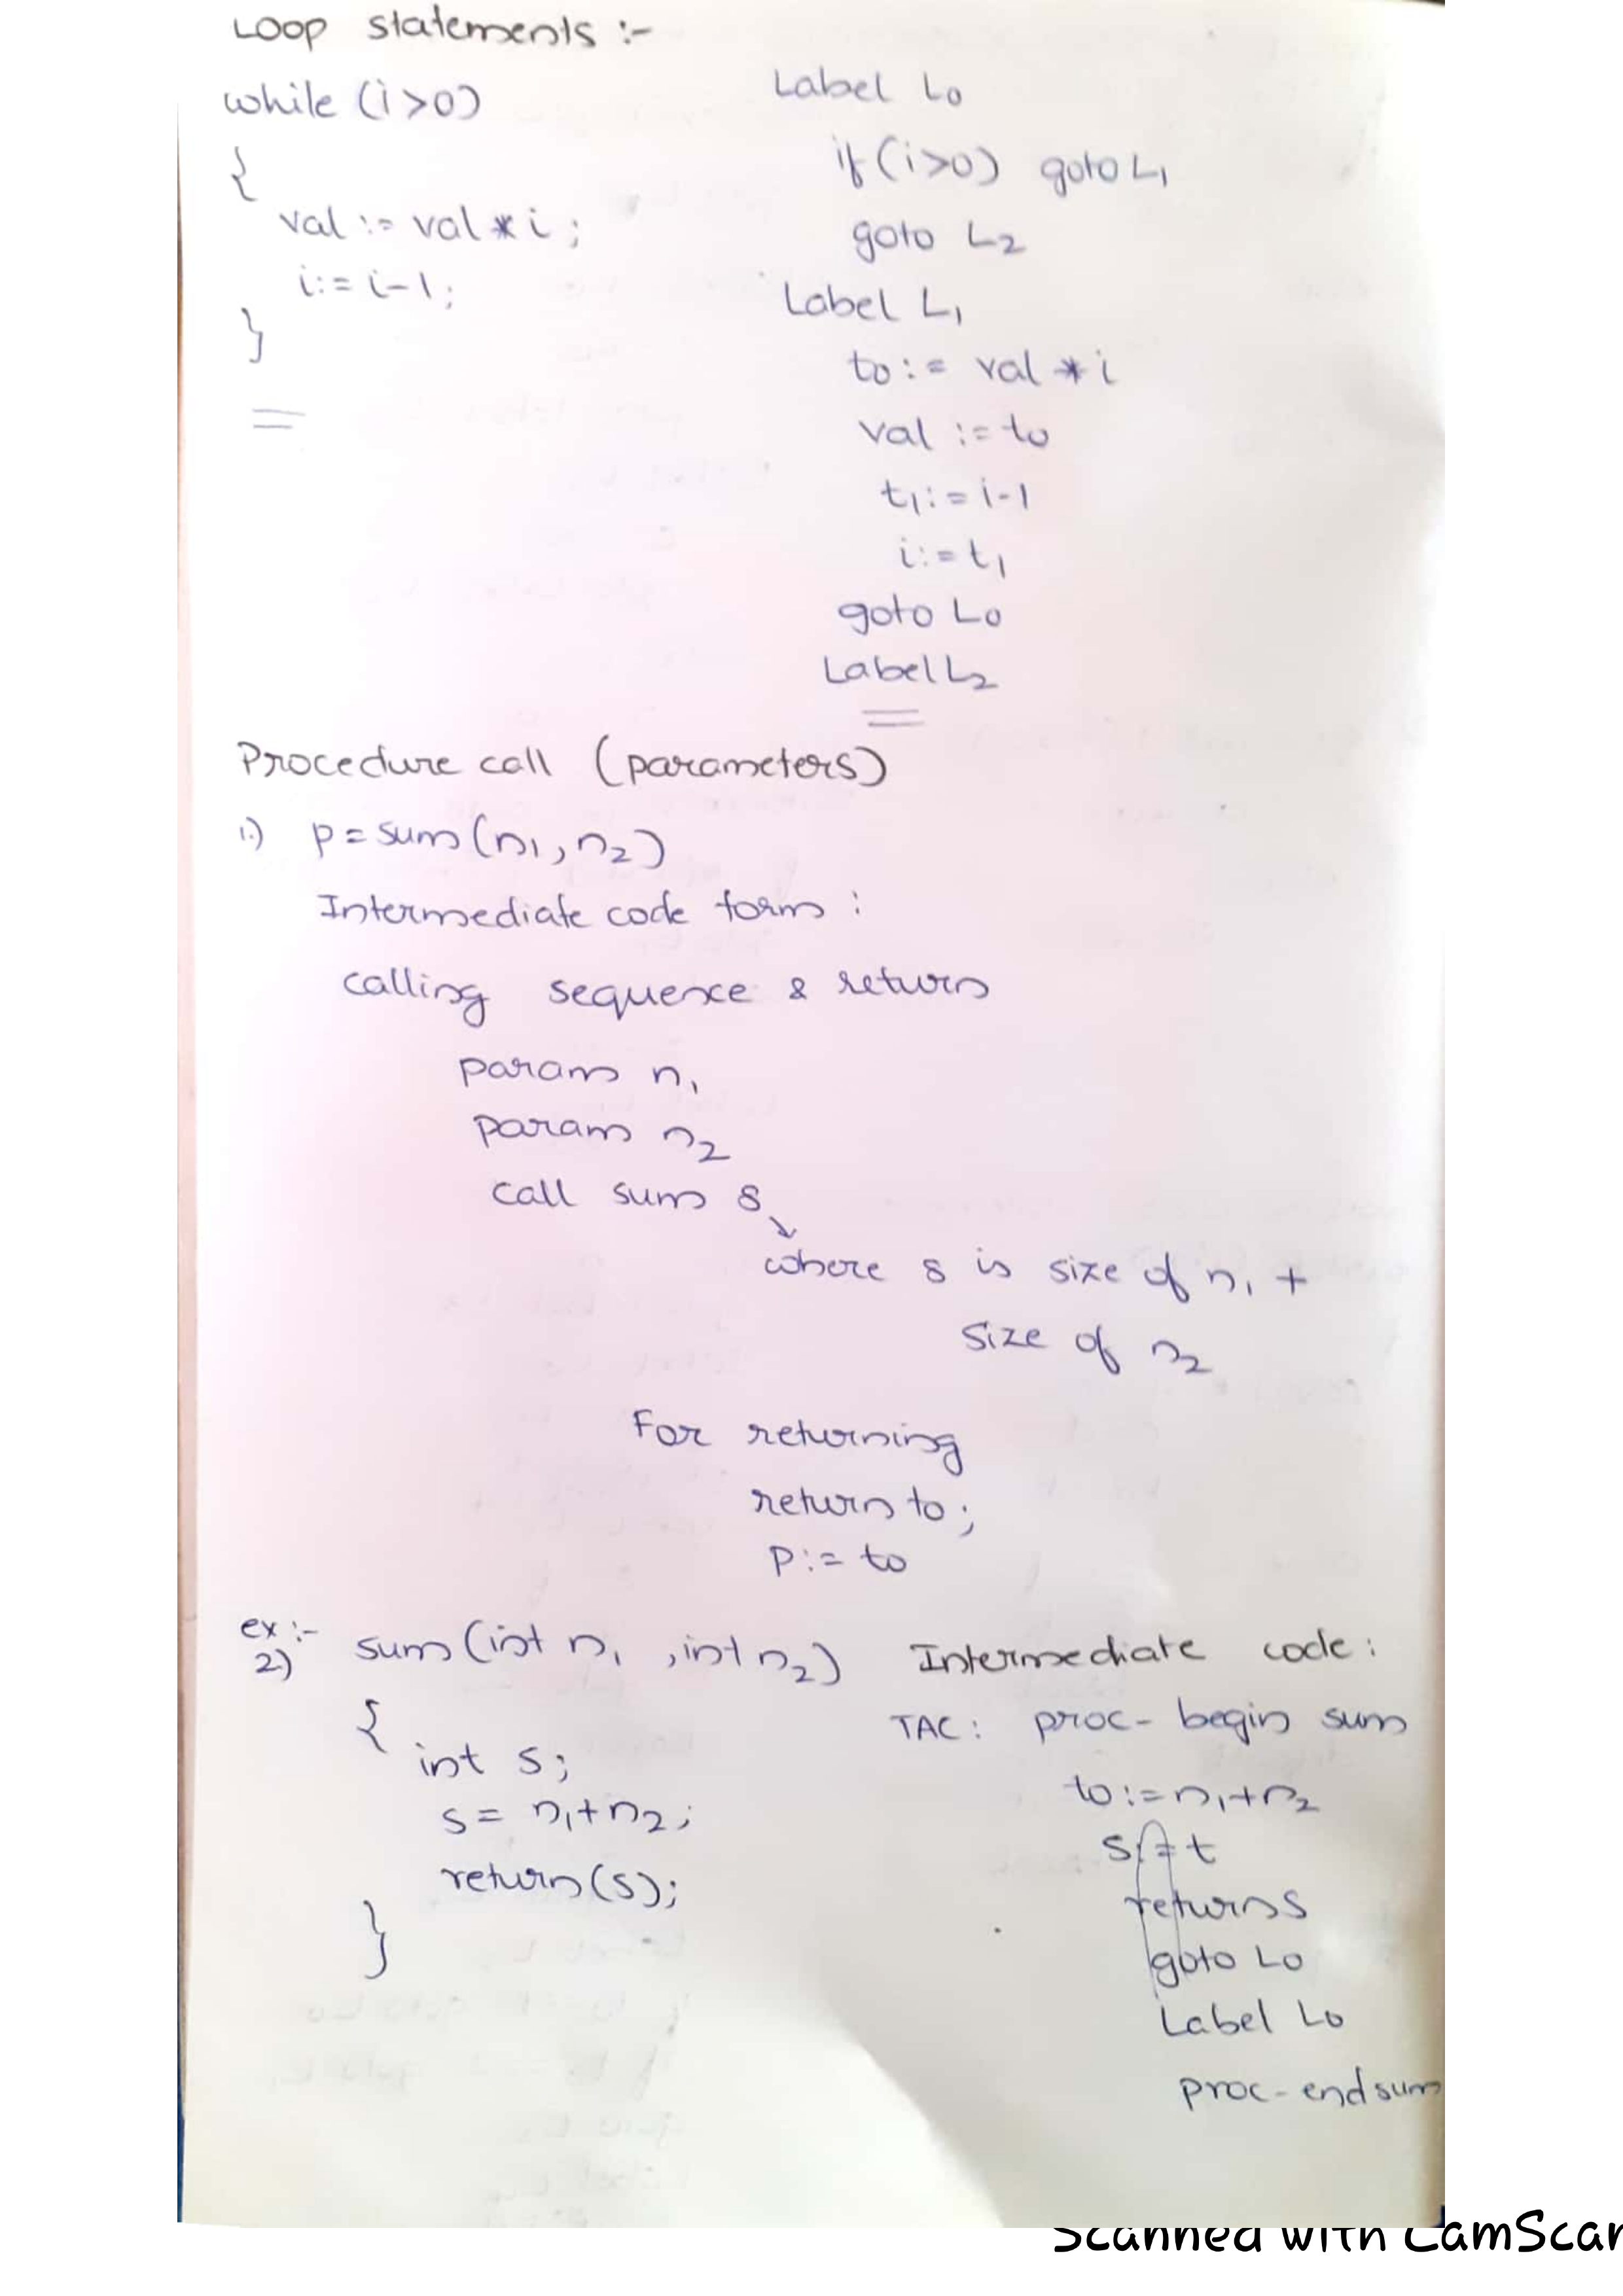 Loop statements :-
while (i>0)
{
val := val * i ;
i := i-1;
}
Label L0
if (i>0) goto L1
goto L2
Label L1
t0 := val * i
val := t0
t1 := i-1
i := t1
goto L0
Label L2
Procedure call (parameters)
1.) p = sum(n1, n2)
Intermediate code form :
calling sequence & return
param n1
param n2
call sum 8
where 8 is size of n1 +
size of n2
For returning
return t0 ;
p := t0
ex :-
2) sum (int n1 , int n2)
{
int s;
s = n1+n2;
return(s);
}
Intermediate code :
TAC : proc- begin sum
t0 := n1+n2
s := t
return s
goto L0
Label L0
proc- end sum
Scanned with CamScan